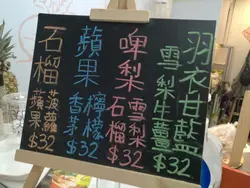 羽衣甘藍
雪梨生薑
$32
啤梨
雪梨
石榴
$32
蘋果
檸檬
香茅
$32
石榴
菠蘿
蘋果
$32